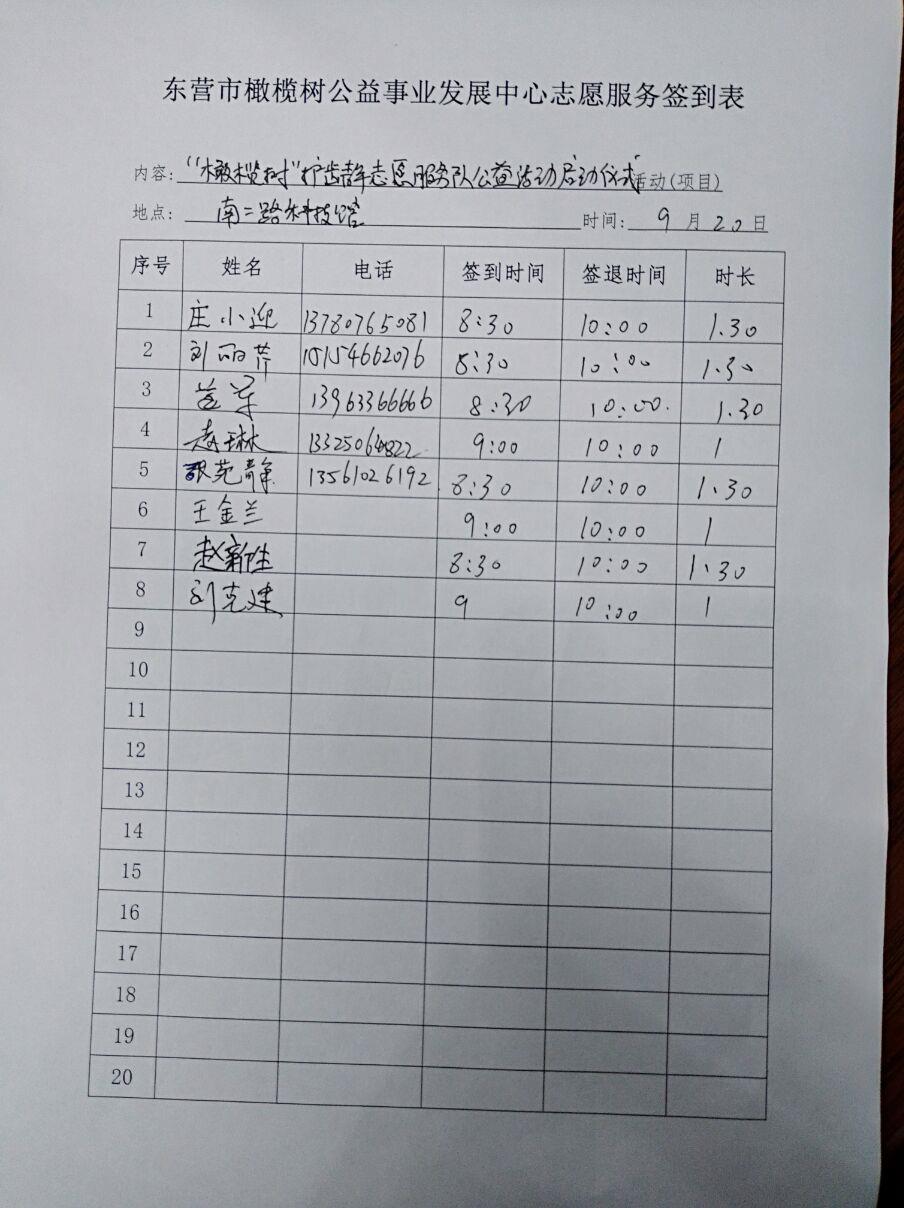 东营市橄榄树公益事业发展中心志愿服务签到表
内容: "橄榄树"护齿静志愿服务队公益活动启动仪式 活动(项目)
地点: 南二路科技馆 时间: 9 月 20 日
序号 姓名 电话 签到时间 签退时间 时长
1 庄小迎 13780765081 8:30 10:00 1.30
2 刘丽芹 15154662076 8:30 10:00 1.30
3 13963366666 8:30 10:00. 1.30
4 赵琳 13325064822 9:00 10:00 1
5 张苑静 13561026192 8:30 10:00 1.30
6 王金兰 9:00 10:00 1
7 赵新性 8:30 10:00 1.30
8 刘克建 9 10:00 1
9
10
11
12
13
14
15
16
17
18
19
20